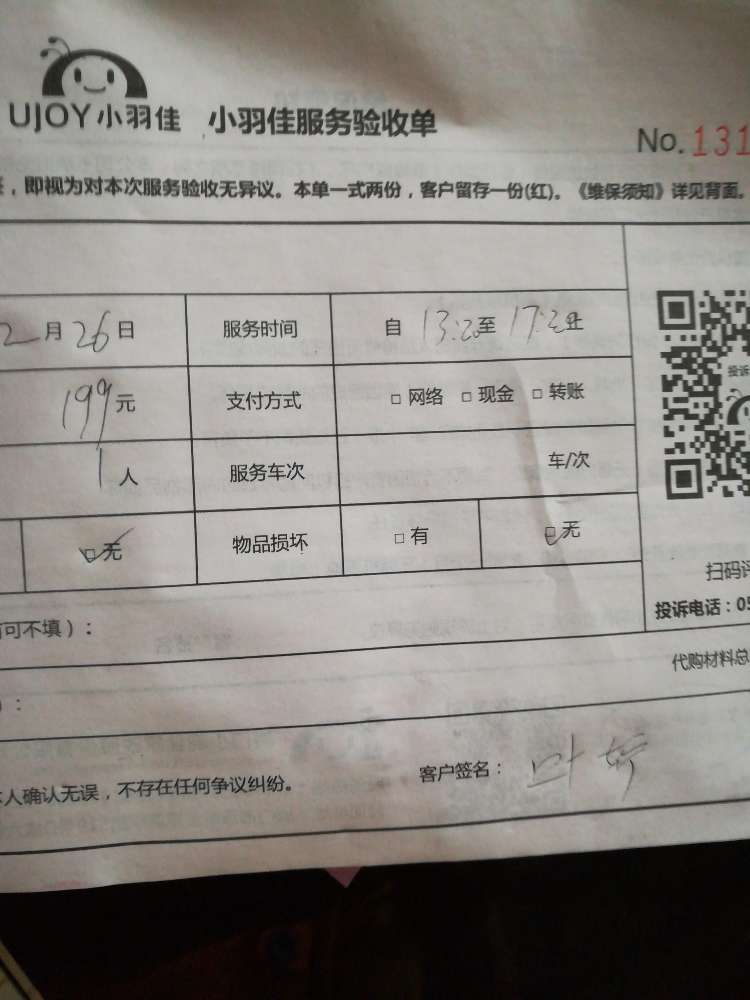 UJOY小羽佳 小羽佳服务验收单
No.131
，即视为对本次服务验收无异议。本单一式两份，客户留存一份(红)。《维保须知》详见背面。
2月26日 服务时间 自 13:20至 17:2 止
199元 支付方式 □ 网络 □ 现金 □ 转账
投诉
1人 服务车次 车/次
□ 无 物品损坏 □ 有 □ 无
扫码评
可不填）：
投诉电话：05
代购材料总
）：
人确认无误，不存在任何争议纠纷。 客户签名： 叶婷